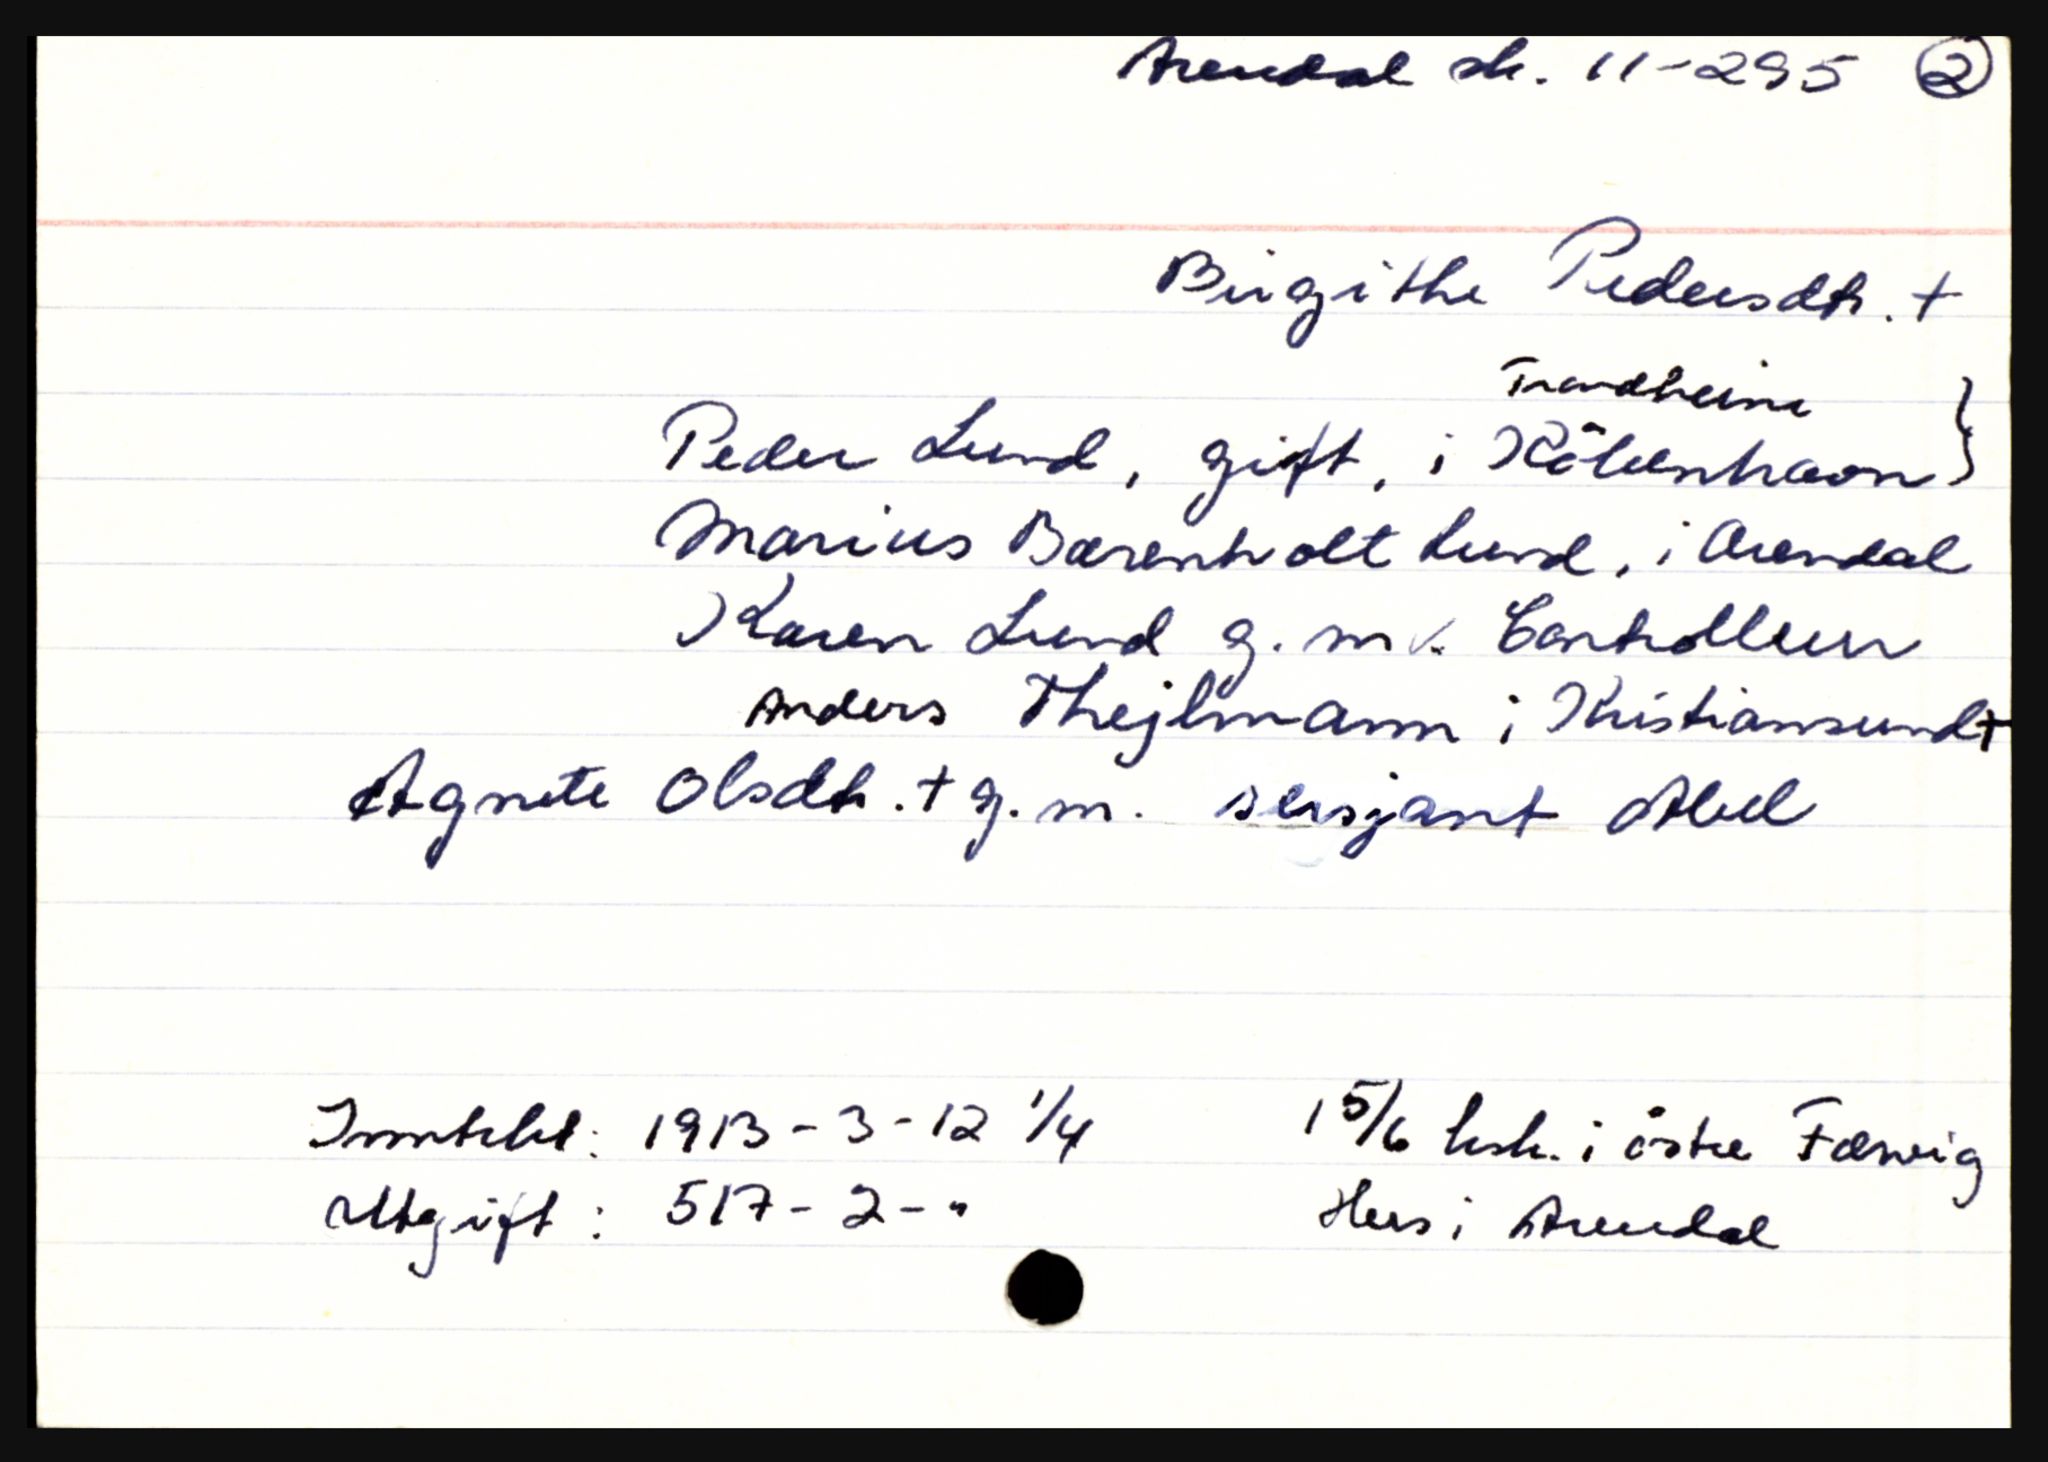 Arendal sk. 11-295 2
Birgithe Pedersdtr. +
Trondheim
Peder Lund, gift, i Köbenhavn }
Marius Barenholt Lund, i Arendal
Karen Lund g. m. Controlleur
Anders Thejlmann i Kristiansund +
Agnete Olsdtr. + g. m. sersjant Abel
Inntekt: 1913-3-12 1/4
15/6 hsk. i östre Færvig
Utgift: 517-2-"
Hus i Arendal